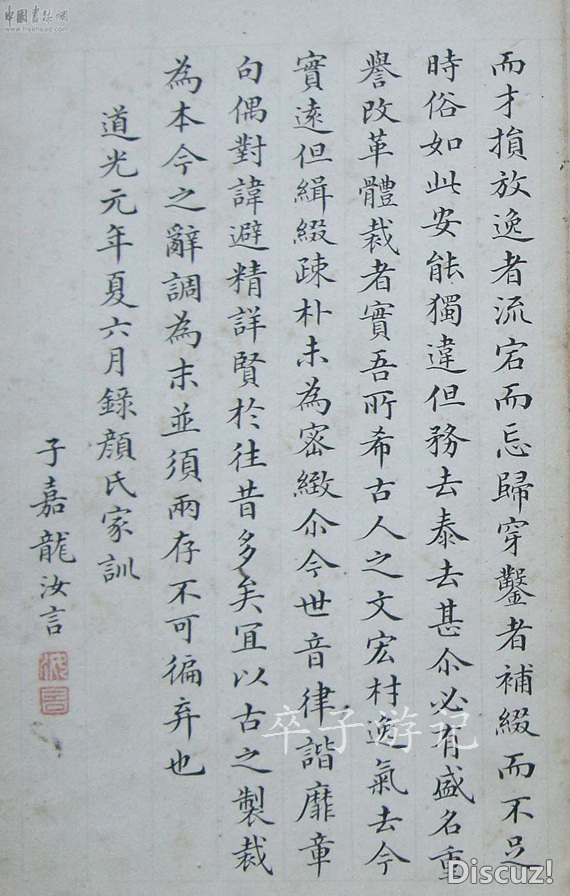 而才損放逸者流宕而忘歸穿鑿者補綴而不足
時俗如此安能獨違但務去泰去甚尒必有盛名重
譽改革體裁者實吾所希古人之文宏材逸氣去今
實遠但緝綴疎朴未為密緻尒今世音律諧靡章
句偶對諱避精詳賢於往昔多矣冝以古之製裁
為本今之辭調為末並須兩存不可徧弃也
道光元年夏六月錄顏氏家訓
子嘉龍汝言
中國書法網
www.freehead.com
卒子游记
Discuz!